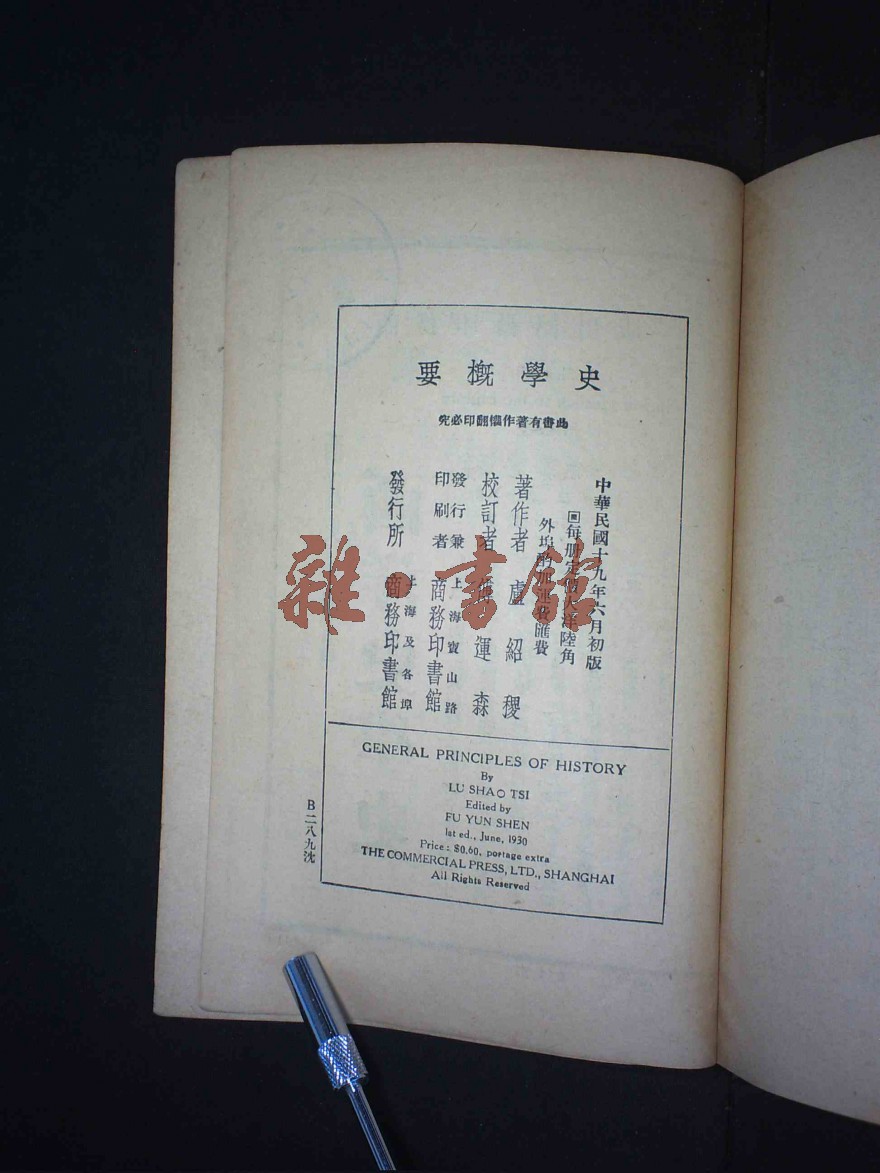 史學概要
此書有著作權翻印必究
中華民國十九年六月初版
每册定價大洋陸角
外埠酌加運費匯費
著作者 盧紹稷
校訂者 傅運森
發行兼印刷者 上海寶山路 商務印書館
發行所 上海及各埠 商務印書館
GENERAL PRINCIPLES OF HISTORY
By
LU SHAO TSI
Edited by
FU YUN SHEN
1st ed., June, 1930
Price: $0.60, portage extra
THE COMMERCIAL PRESS, LTD., SHANGHAI
All Rights Reserved
B二八九沈
雜·書館